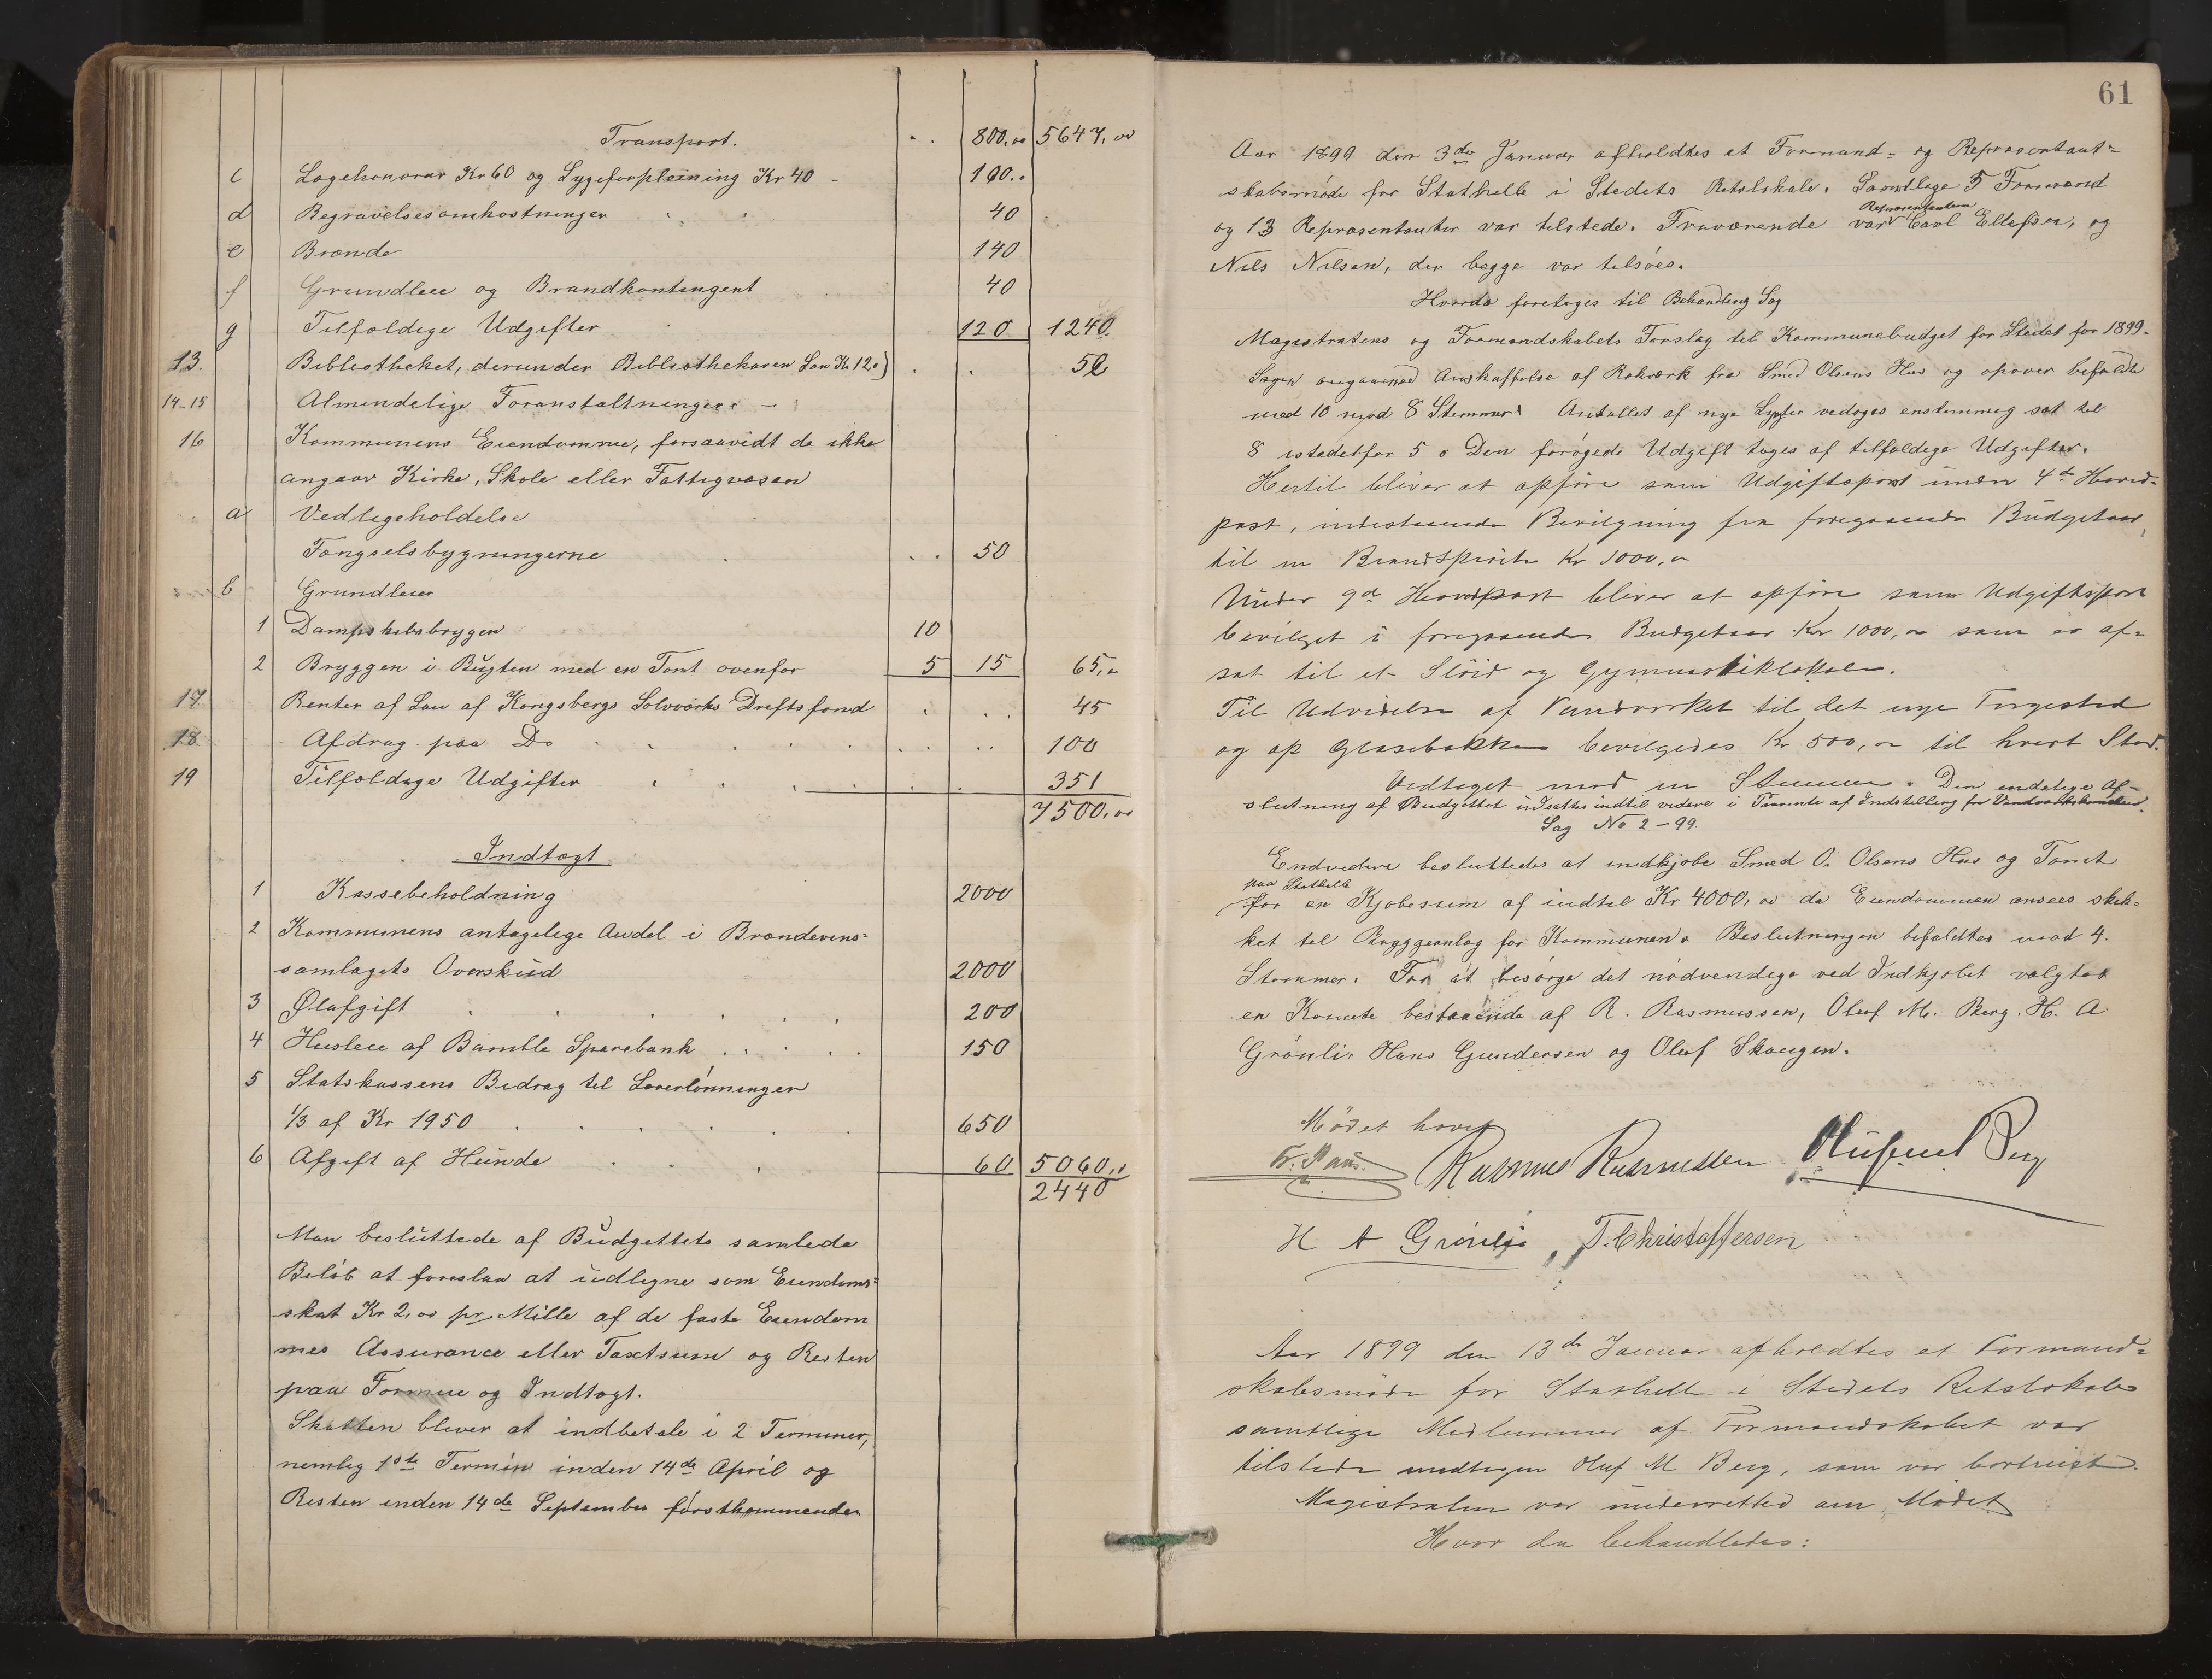 Transport. . . 800,00 5647,00
c Lægehonorar Kr 60 og Sygeforpleining Kr 40 - 100..
d Begravelsesomkostninger 40
e Brænde 140
f Grundleie og Brandkontingent 40
g Tilfældige Udgifter 120 1240
13. Bibliotheket, derunder Bibliothekaren Løn Kr 12.) . . 52
14-15 Almindelige Foranstaltninger. -
16 Kommunens Eiendomme, forsaavidt de ikke
angaar Kirke, Skole eller Fattigvæsen
a Vedligeholdelse
Fængselsbygningerne . . 50
b Grundleie
1 Dampskibsbryggen 10
2 Bryggen i Bugten med en Tomt ovenfor 5 15 65,-
17 Renter af Laan af Kongsbergs Sølvværks Driftsfond . . . 45
18. Afdrag paa Do . . . . . . 100
19 Tilfældige Udgifter . . . . 351
7500,00
Indtægt
1 Kassebeholdning 2000
2 Kommunens antagelige Andel i Brændevins=
samlagets Overskud 2000
3 Ølafgift . . . . . 200
4 Husleie af Bamble Sparebank . . . . 150
5 Statskassens Bidrag til Lærerlønninger
1/3 af Kr 1950 . . . . . 650
6 Afgift af Hunde . . . 60 5060,0
2440
Man besluttede af Budgettets samlede
Beløb at foreslaa at udligne som Eiendoms=
skat Kr 2,00 pr Mille af de faste Eiendom
mes Assurance eller Taxtsum og Resten
paa Formue og Indtægt.
Skatten bliver at indbetale i 2 Terminer,
nemlig 1ste Termin inden 14de April og
Resten inden 14de September førstkommende.
61
Aar 1899 den 3de Januar afholdtes et Formand- og Repræsentant-
skabsmøde for Stathelle i Stedets Retslokale. Samtlige 5 Formænd
og 13 Repræsentanter var tilstede. Fraværende var Repræsentanterne Carl Ellefsen, og
Nils Nilsen, der begge var tilsøes.
Hvorda foretoges til Behandling Sag
Magistratens og Formandskabets Forslag til Kommunebudget for Stedet for 1899.
Sagen angaaende Anskaffelse af Rækværk fra Smed Olsens Hus og opover befaldt
med 10 mod 8 Stemmer. Antallet af nye Lygter vedtoges enstemmig sat til
8 istedetfor 5. Den forøgede Udgift tages af tilfældige Udgifter.
Hertil bliver at opføre som Udgiftspost under 4de Hoved-
post, indestaaende Bevilgning fra foregaaende Budgetaar,
til en Brandsprøite Kr 1000,00
Under 9de Hovedpost bliver at opføre som Udgiftspost
bevilget i foregaaende Budgetaar Kr 1000,00 som er af-
sat til et Sløid og Gymnastiklokale.
Til Udvidelse af Vandværket til det nye Færgested
og op Glasebakken bevilgedes Kr 500,00 til hvert Sted.
Vedtaget mod en Stemme. Den endelige Af-
slutning af Budgettet udsættes indtil videre i Paavente af Indstilling fra
Sag No 2-99.
Endvidere besluttedes at indkjøbe Smed O. Olsens Hus og Tomt
paa Stathelle
for en Kjøbesum af indtil Kr 4000,00 da Eiendommen ansees skik=
ket til Bryggeanlæg for Kommunen. Beslutningen bifaldtes mod 4.
Stemmer. For at besørge det nødvendige ved Indkjøbet valgtes
en Komite bestaaende af R. Rasmussen, Oluf M. Berg. H. A
Grønli. Hans Gundersen og Oluf Skougen.
Mødet hævet
Fr. Paus. Rasmus Rasmussen Oluf M Berg
H A Grønli, T. Christoffersen
Aar 1899 den 13de Januar afholdtes et Formand=
skabsmøde for Stathelle i Stedets Retslokale
samtlige Medlemmer af Formandskabet var
tilstede undtagen Oluf M Berg, som var bortreist.
Magistraten var underrettet om Mødet
Hvor da behandledes: